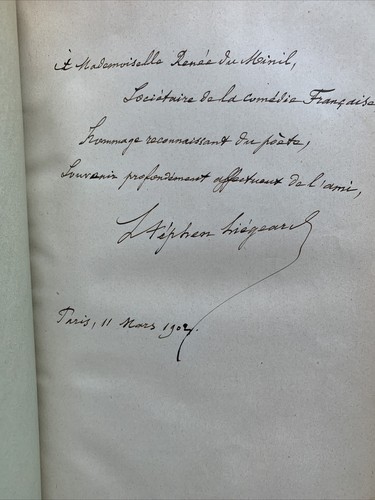 À Mademoiselle Renée du Minil,
Sociétaire de la comédie Française
Hommage reconnaissant du poète,
Souvenir profondément affectueux de l'ami,
Stéphen Liégeard
Paris, 11 Mars 1902.